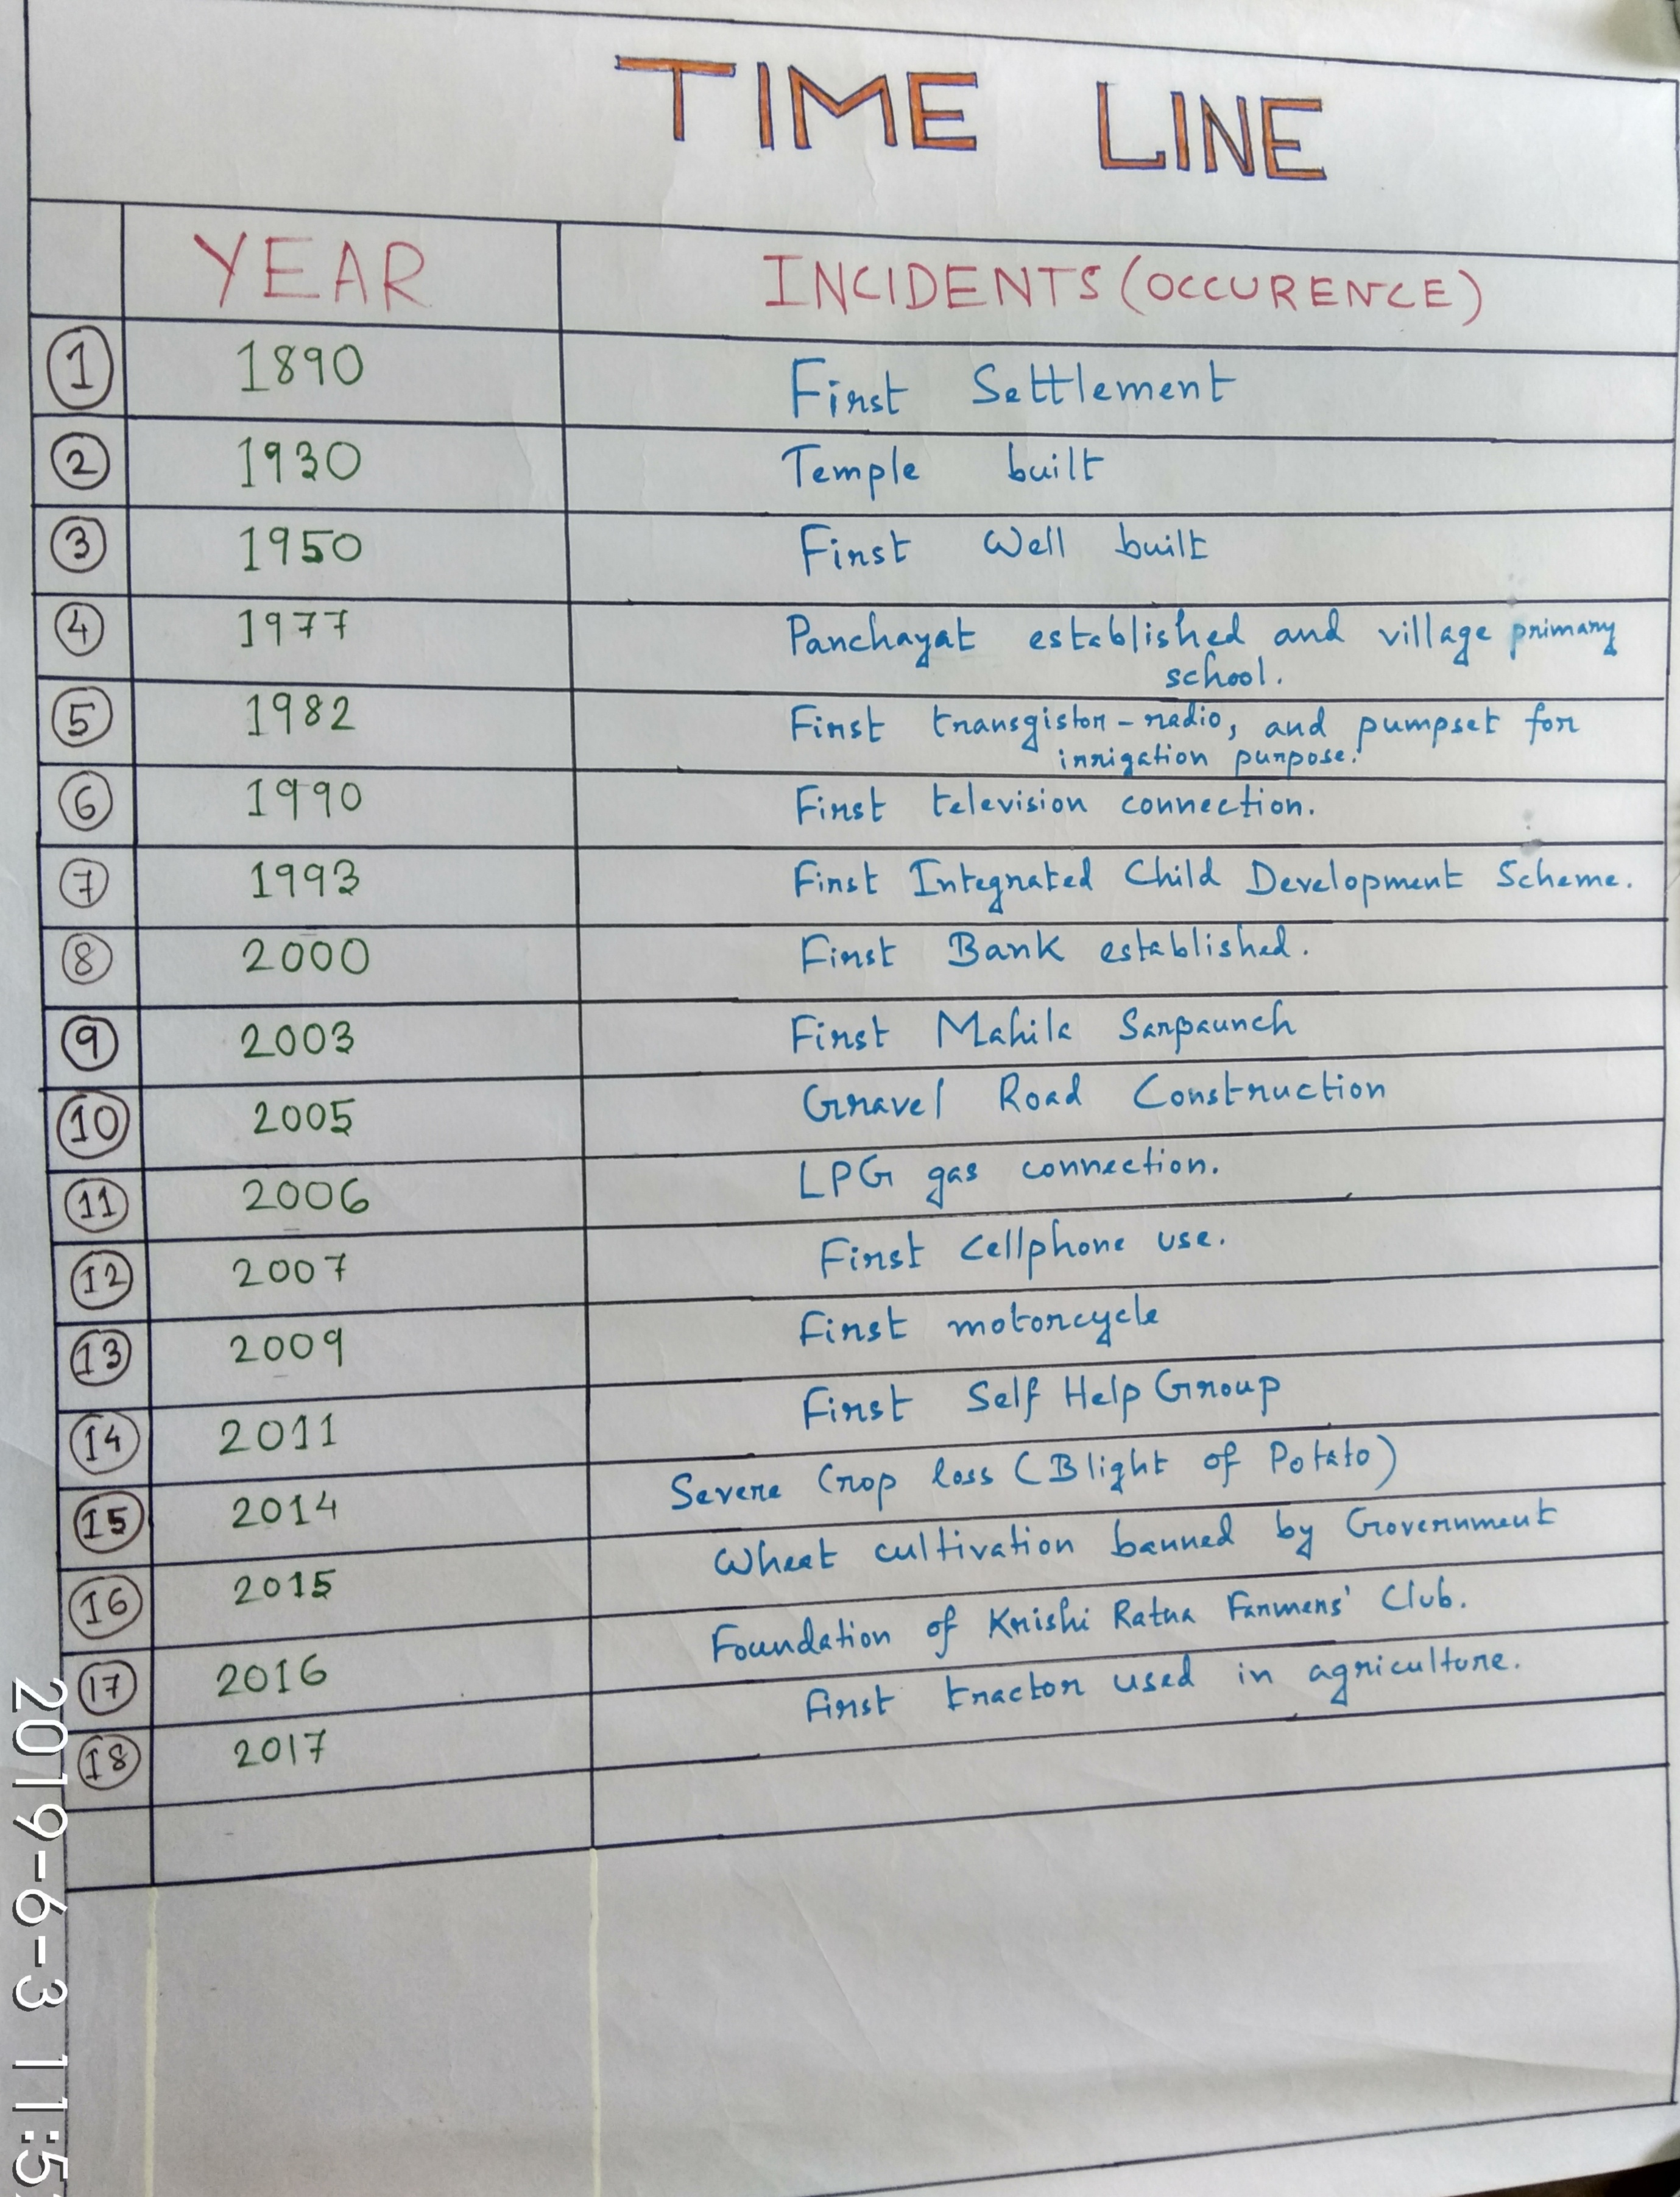 TIME LINE
YEAR INCIDENTS (OCCURENCE)
1 1890 First Settlement
2 1930 Temple built
3 1950 First Well built
4 1977 Panchayat established and village primary
school.
5 1982 First transgistor-radio, and pumpset for
irrigation purpose.
6 1990 First television connection.
7 1993 First Integrated Child Development Scheme.
8 2000 First Bank established.
9 2003 First Mahila Sarpaunch
10 2005 Gravel Road Construction
11 2006 LPG gas connection.
12 2007 First Cellphone use.
13 2009 First motorcycle
14 2011 First Self Help Group
15 2014 Severe Crop loss (Blight of Potato)
16 2015 Wheat cultivation banned by Government
17 2016 Foundation of Krishi Ratna Farmers' Club.
18 2017 First tractor used in agriculture.
2019-6-3 11:5